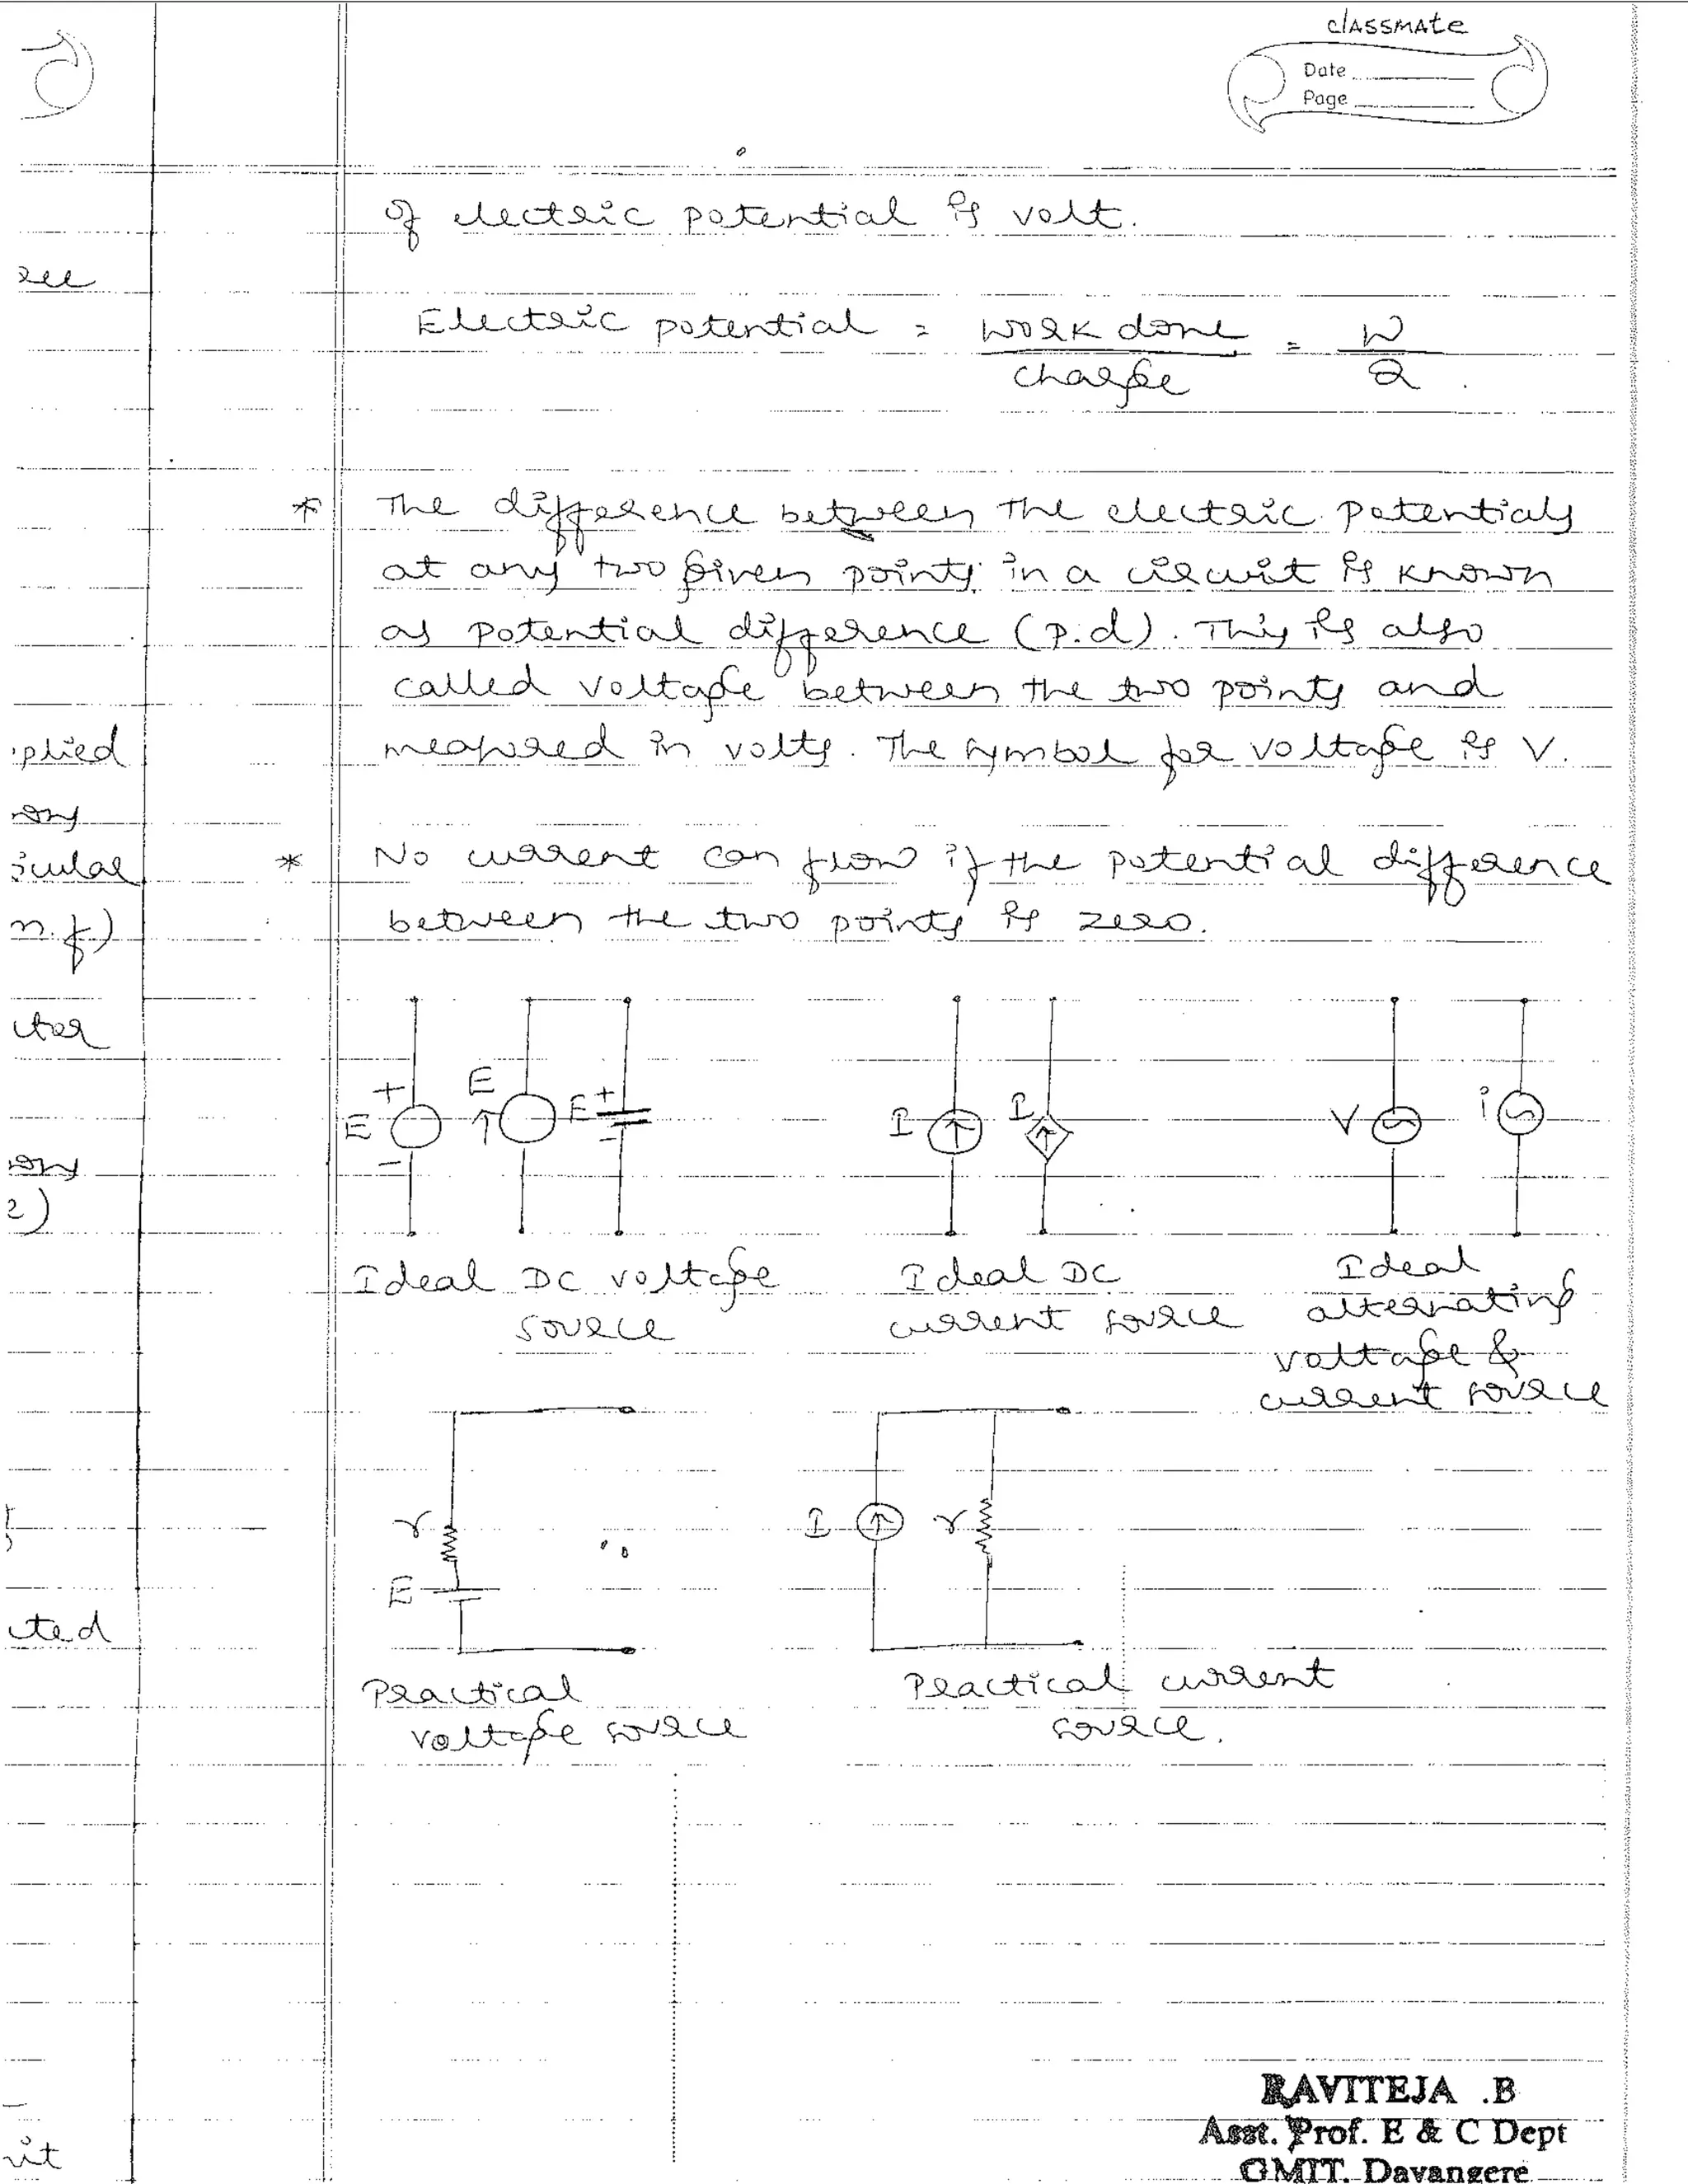 classmate
Date
Page
of electric potential is volt.
Electric potential = Work done / charge = W / Q .
* The difference between the electric potentials
at any two given points in a circuit is known
as potential difference (p.d). This is also
called voltage between the two points and
measured in volts. The symbol for voltage is V.
* No current can flow if the potential difference
between the two points is zero.
+ E - E E + -
I I
V i
Ideal DC voltage
source
Ideal DC
current source
Ideal
alternating
voltage &
current source
r
E
I r
Practical
voltage source
Practical current
source.
plied
m.f)
cted
RAVITEJA .B
Asst. Prof. E & C Dept
GMIT, Davangere